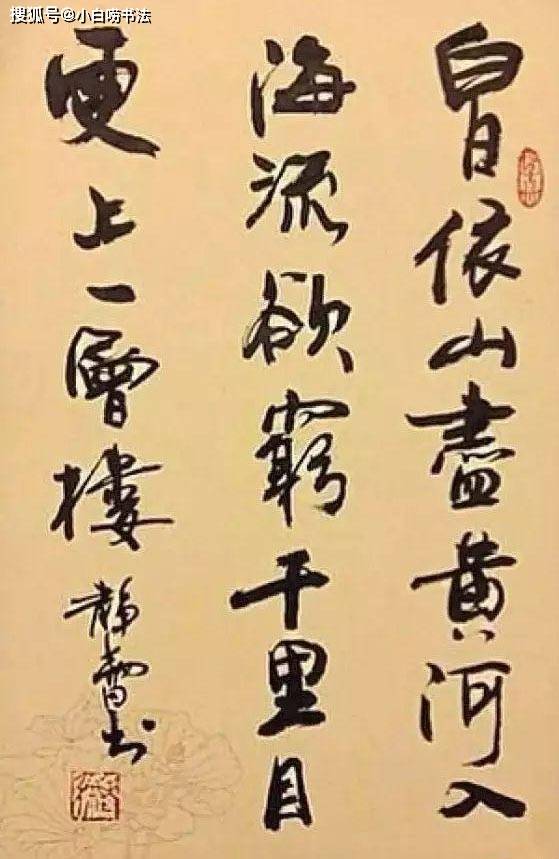 搜狐号@小白唠书法
白日依山盡黄河入
海流欲窮千里目
更上一層樓
書